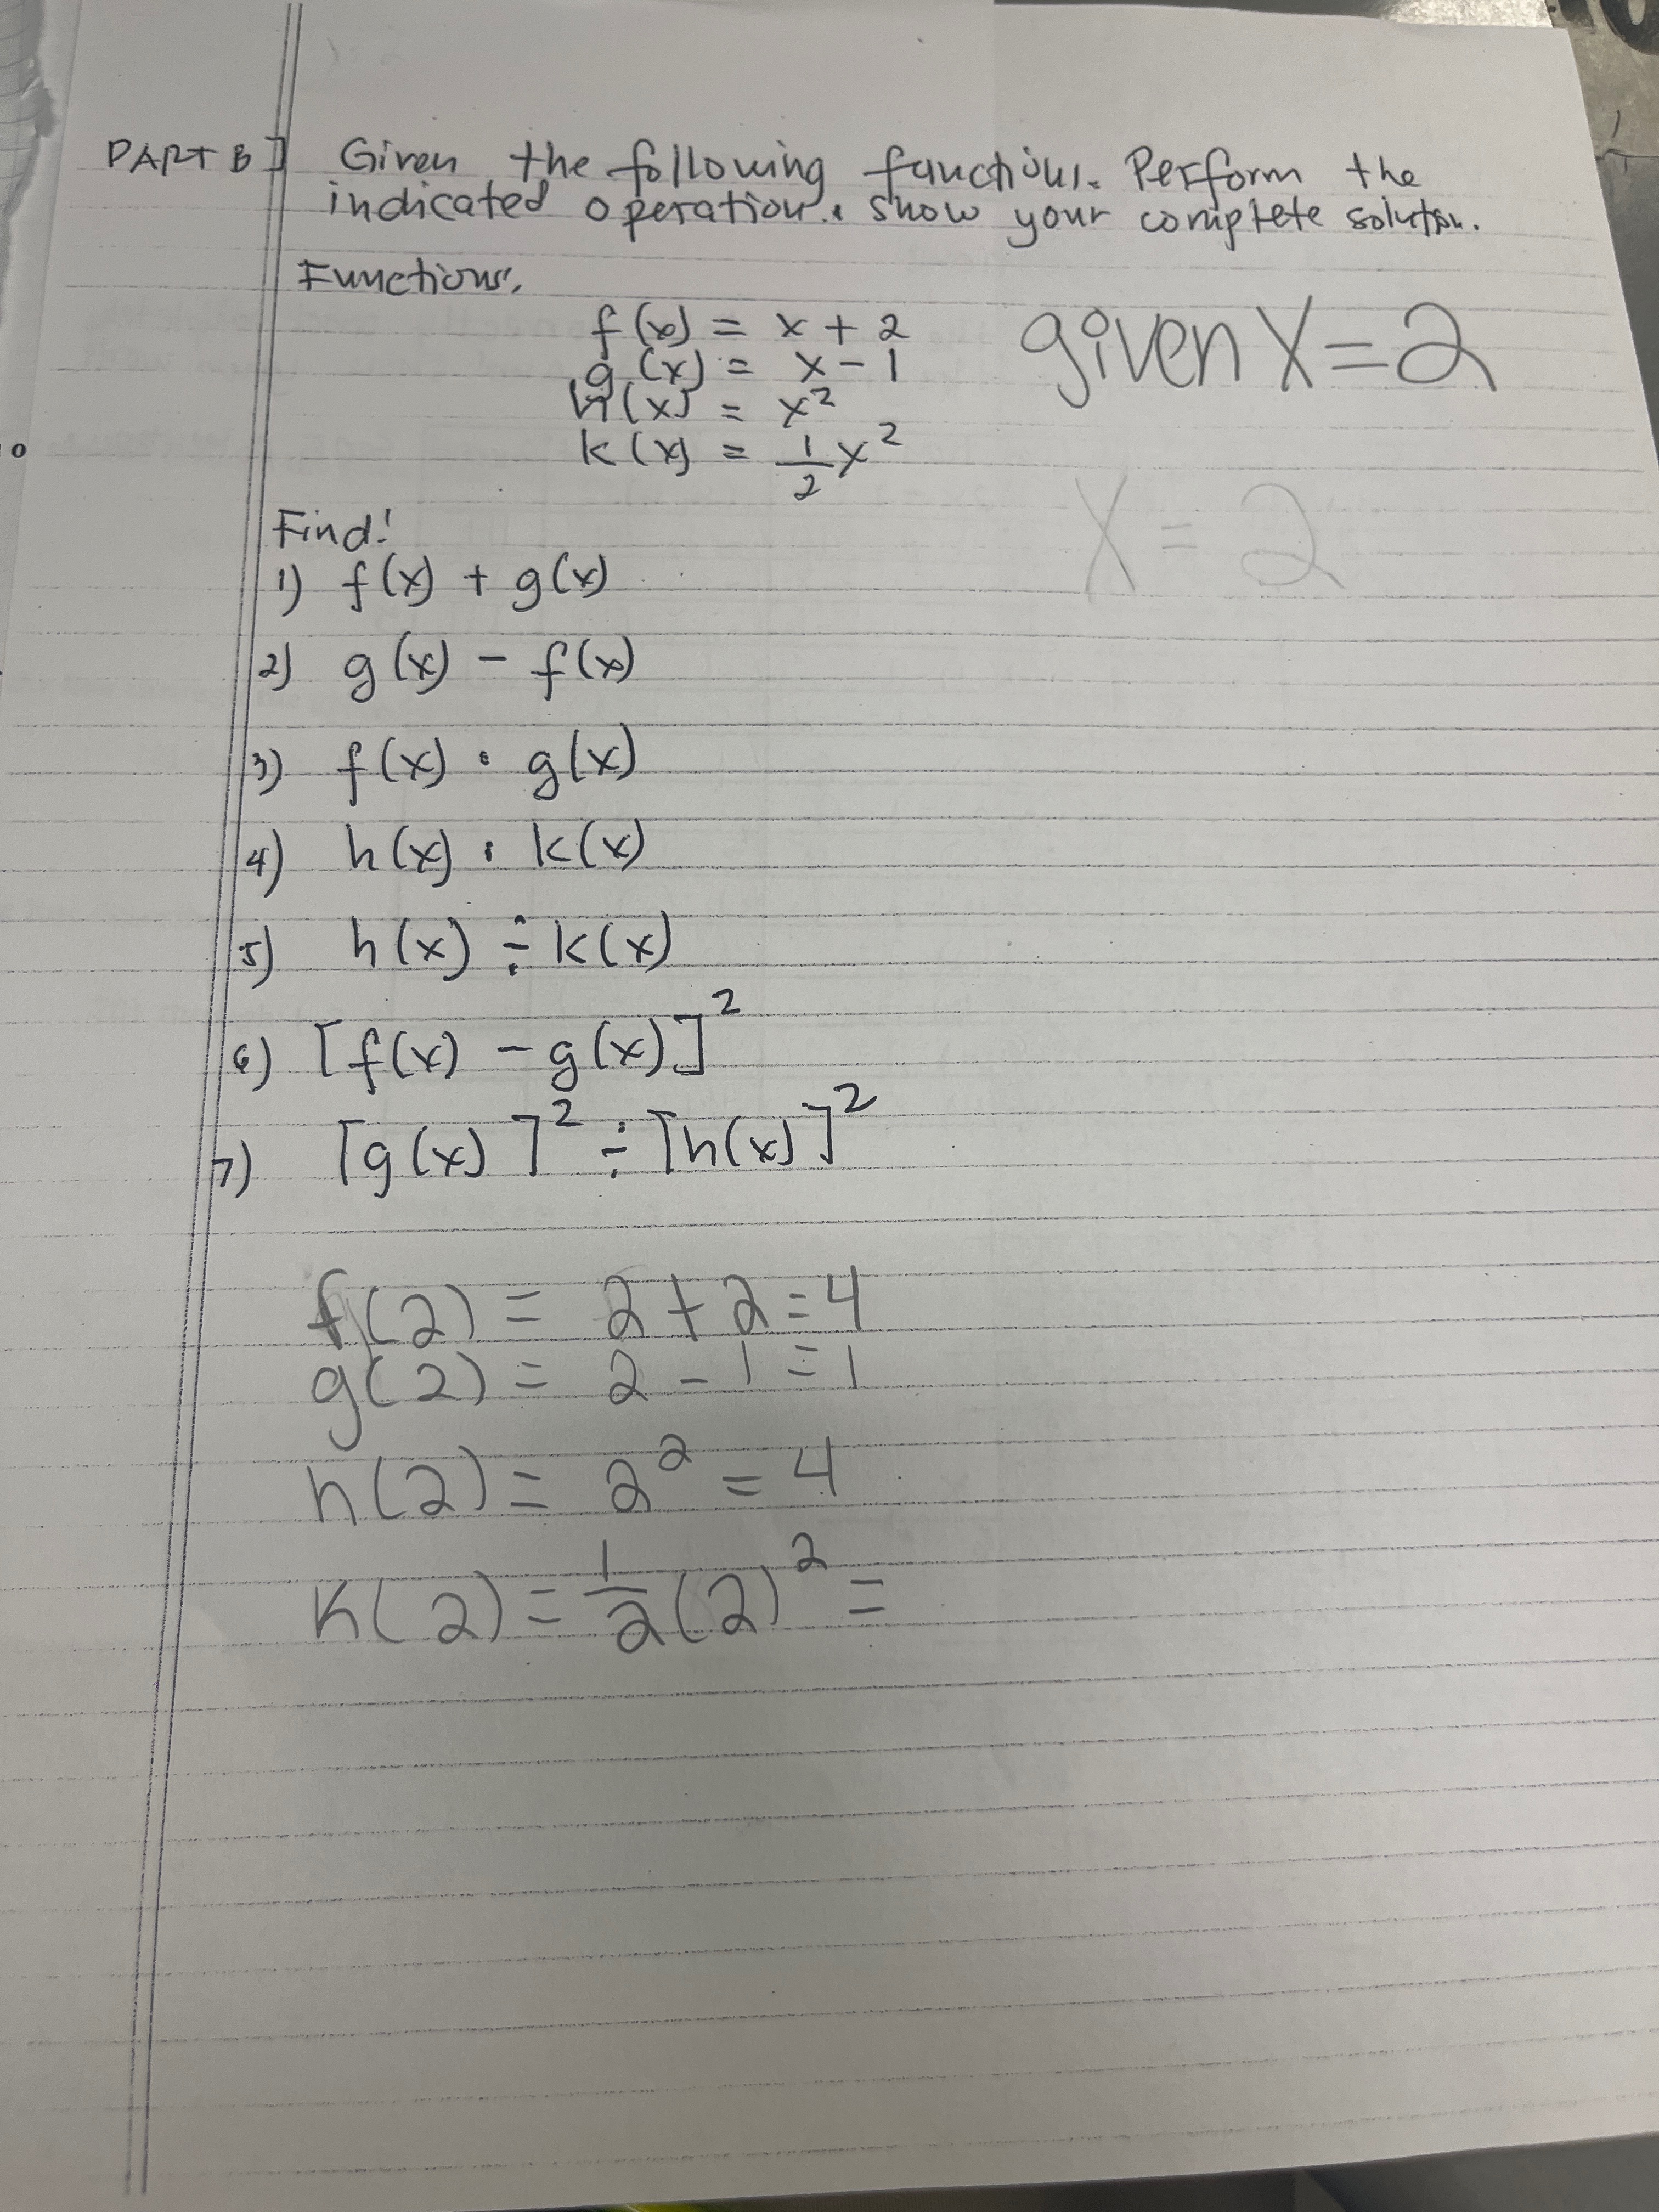 PART B] Given the following functions. Perform the
indicated operation. Show your complete solution.
Functions.
f(x) = x + 2
given X = 2
g(x) = x - 1
h(x) = x²
k(x) = 1/2 x²
X = 2
Find!
1) f(x) + g(x)
2) g(x) - f(x)
3) f(x) · g(x)
4) h(x) · k(x)
5) h(x) ÷ k(x)
6) [f(x) - g(x)]²
7) [g(x)]² ÷ [h(x)]²
f(2) = 2 + 2 = 4
g(2) = 2 - 1 = 1
h(2) = 2² = 4
K(2) = 1/2 (2)² =